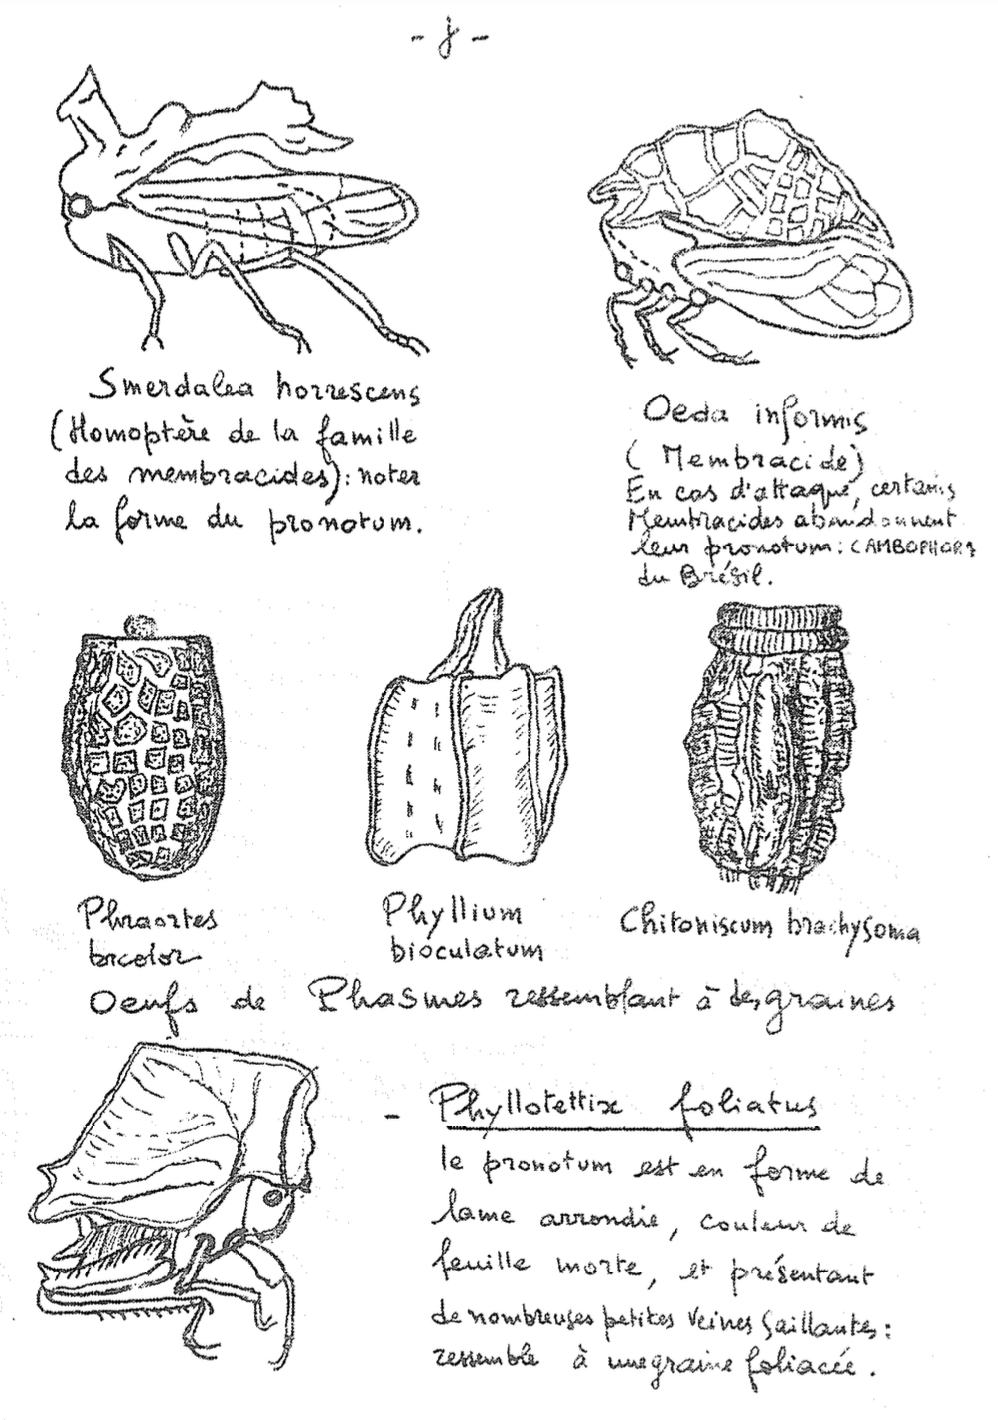 - j -
Smerdalea horrescens
(Homoptère de la famille
des membracides): noter
la forme du pronotum.
Oeda informis
(Membracide)
En cas d'attaque, certains
Membracides abandonnent
leur pronotum: CAMBOPHORA
du Brésil.
Phraortes
bicolor
Phyllium
bioculatum
Chitoniscum brachysoma
Oeufs de Phasmes ressemblant à des graines
- Phyllotettix foliatus
le pronotum est en forme de
lame arrondie, couleur de
feuille morte, et présentant
de nombreuses petites veines saillantes:
ressemble à une graine foliacée.